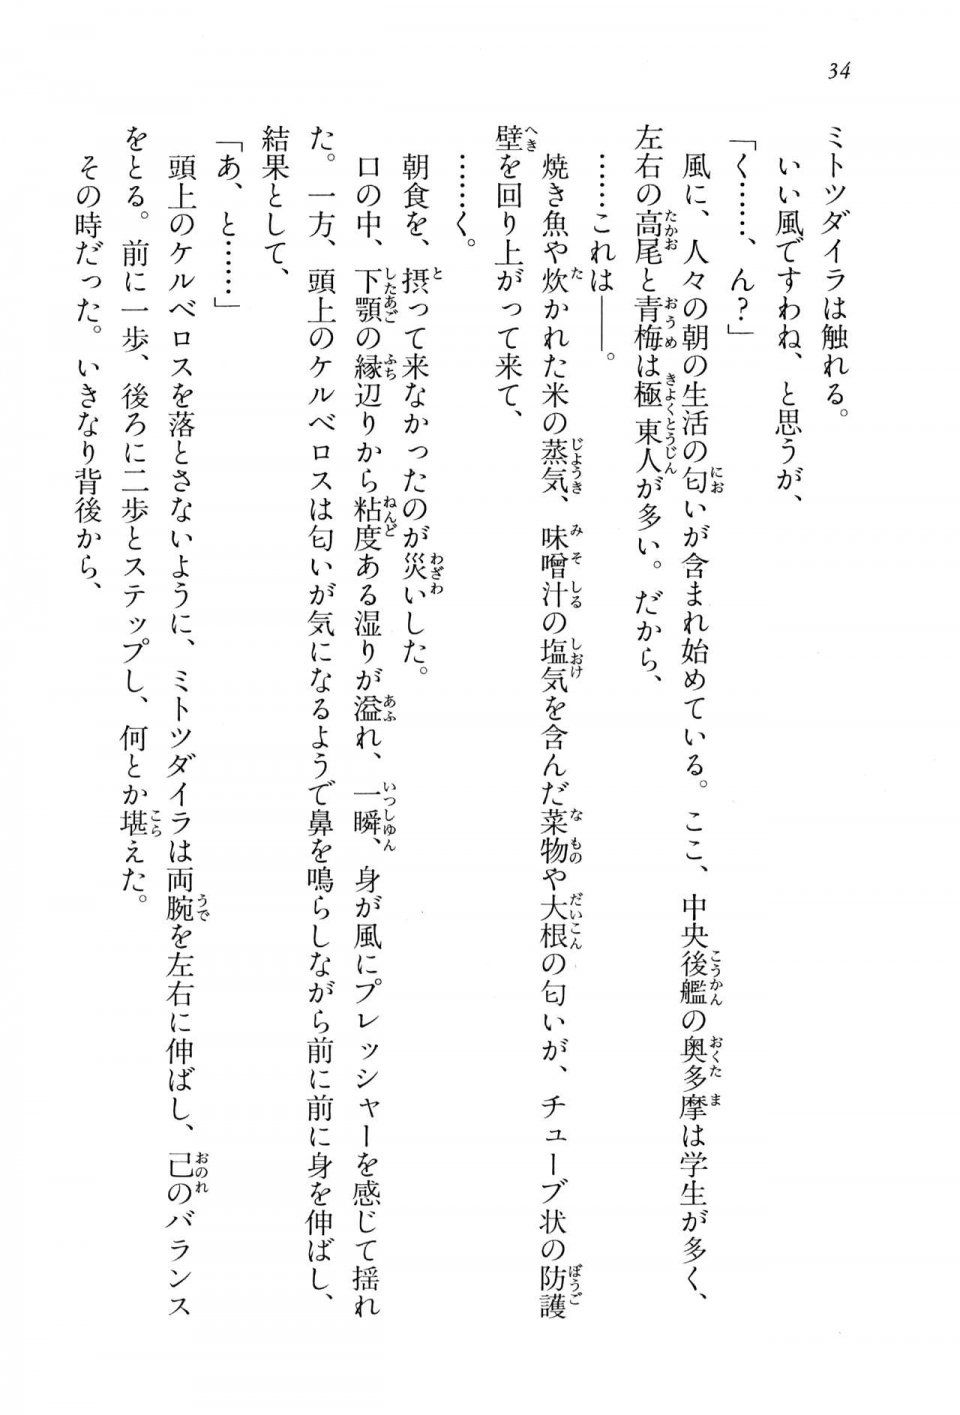 34
ミトツダイラは触れる。
いい風ですわね、と思うが、
「く……、ん?」
風に、人々の朝の生活の匂いが含まれ始めている。ここ、中央後艦の奥多摩は学生が多く、
左右の高尾と青梅は極東人が多い。だから、
……これは――。
焼き魚や炊かれた米の蒸気、味噌汁の塩気を含んだ菜物や大根の匂いが、チューブ状の防護
壁を回り上がって来て、
……く。
朝食を、摂って来なかったのが災いした。
口の中、下顎の縁辺りから粘度ある湿りが溢れ、一瞬、身が風にプレッシャーを感じて揺れ
た。一方、頭上のケルベロスは匂いが気になるようで鼻を鳴らしながら前に前に身を伸ばし、
結果として、
「あ、と……」
頭上のケルベロスを落とさないように、ミトツダイラは両腕を左右に伸ばし、己のバランス
をとる。前に一歩、後ろに二歩とステップし、何とか堪えた。
その時だった。いきなり背後から、